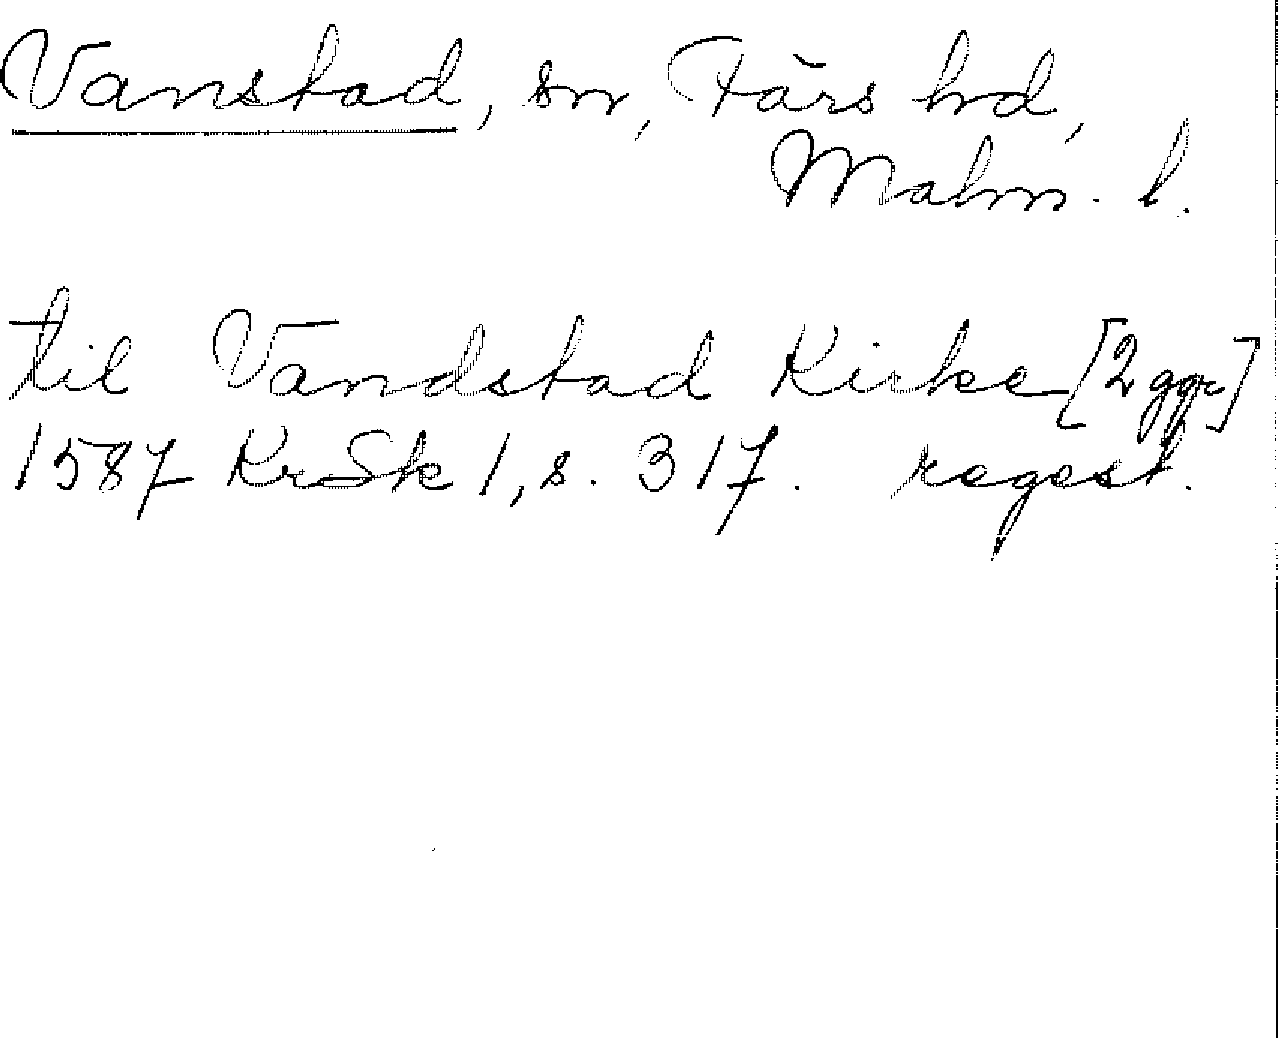 Vanstad, sn, Färs hd,
Malm. l.
til Vandstad Kirke [2 ggr]
1587 KrSk 1, s. 317. regest.